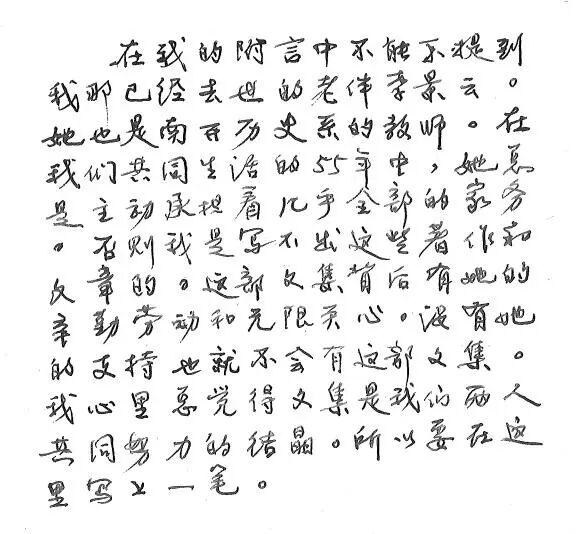 在我的附言中不能不提到
我那已经去世的老伴李景云。
她也是南开历史系的教师。在
我们共同生活的55年中，她总
是主动承担着几乎全部的家务
。否则我是写不出这些著作和
文章的。这部文集背后有她的
辛勤劳动和无限关心。没有她
的支持也就不会有这部文集。
我心里总觉得文集是我们两人
共同努力的结晶。所以要在这
里写上一笔。